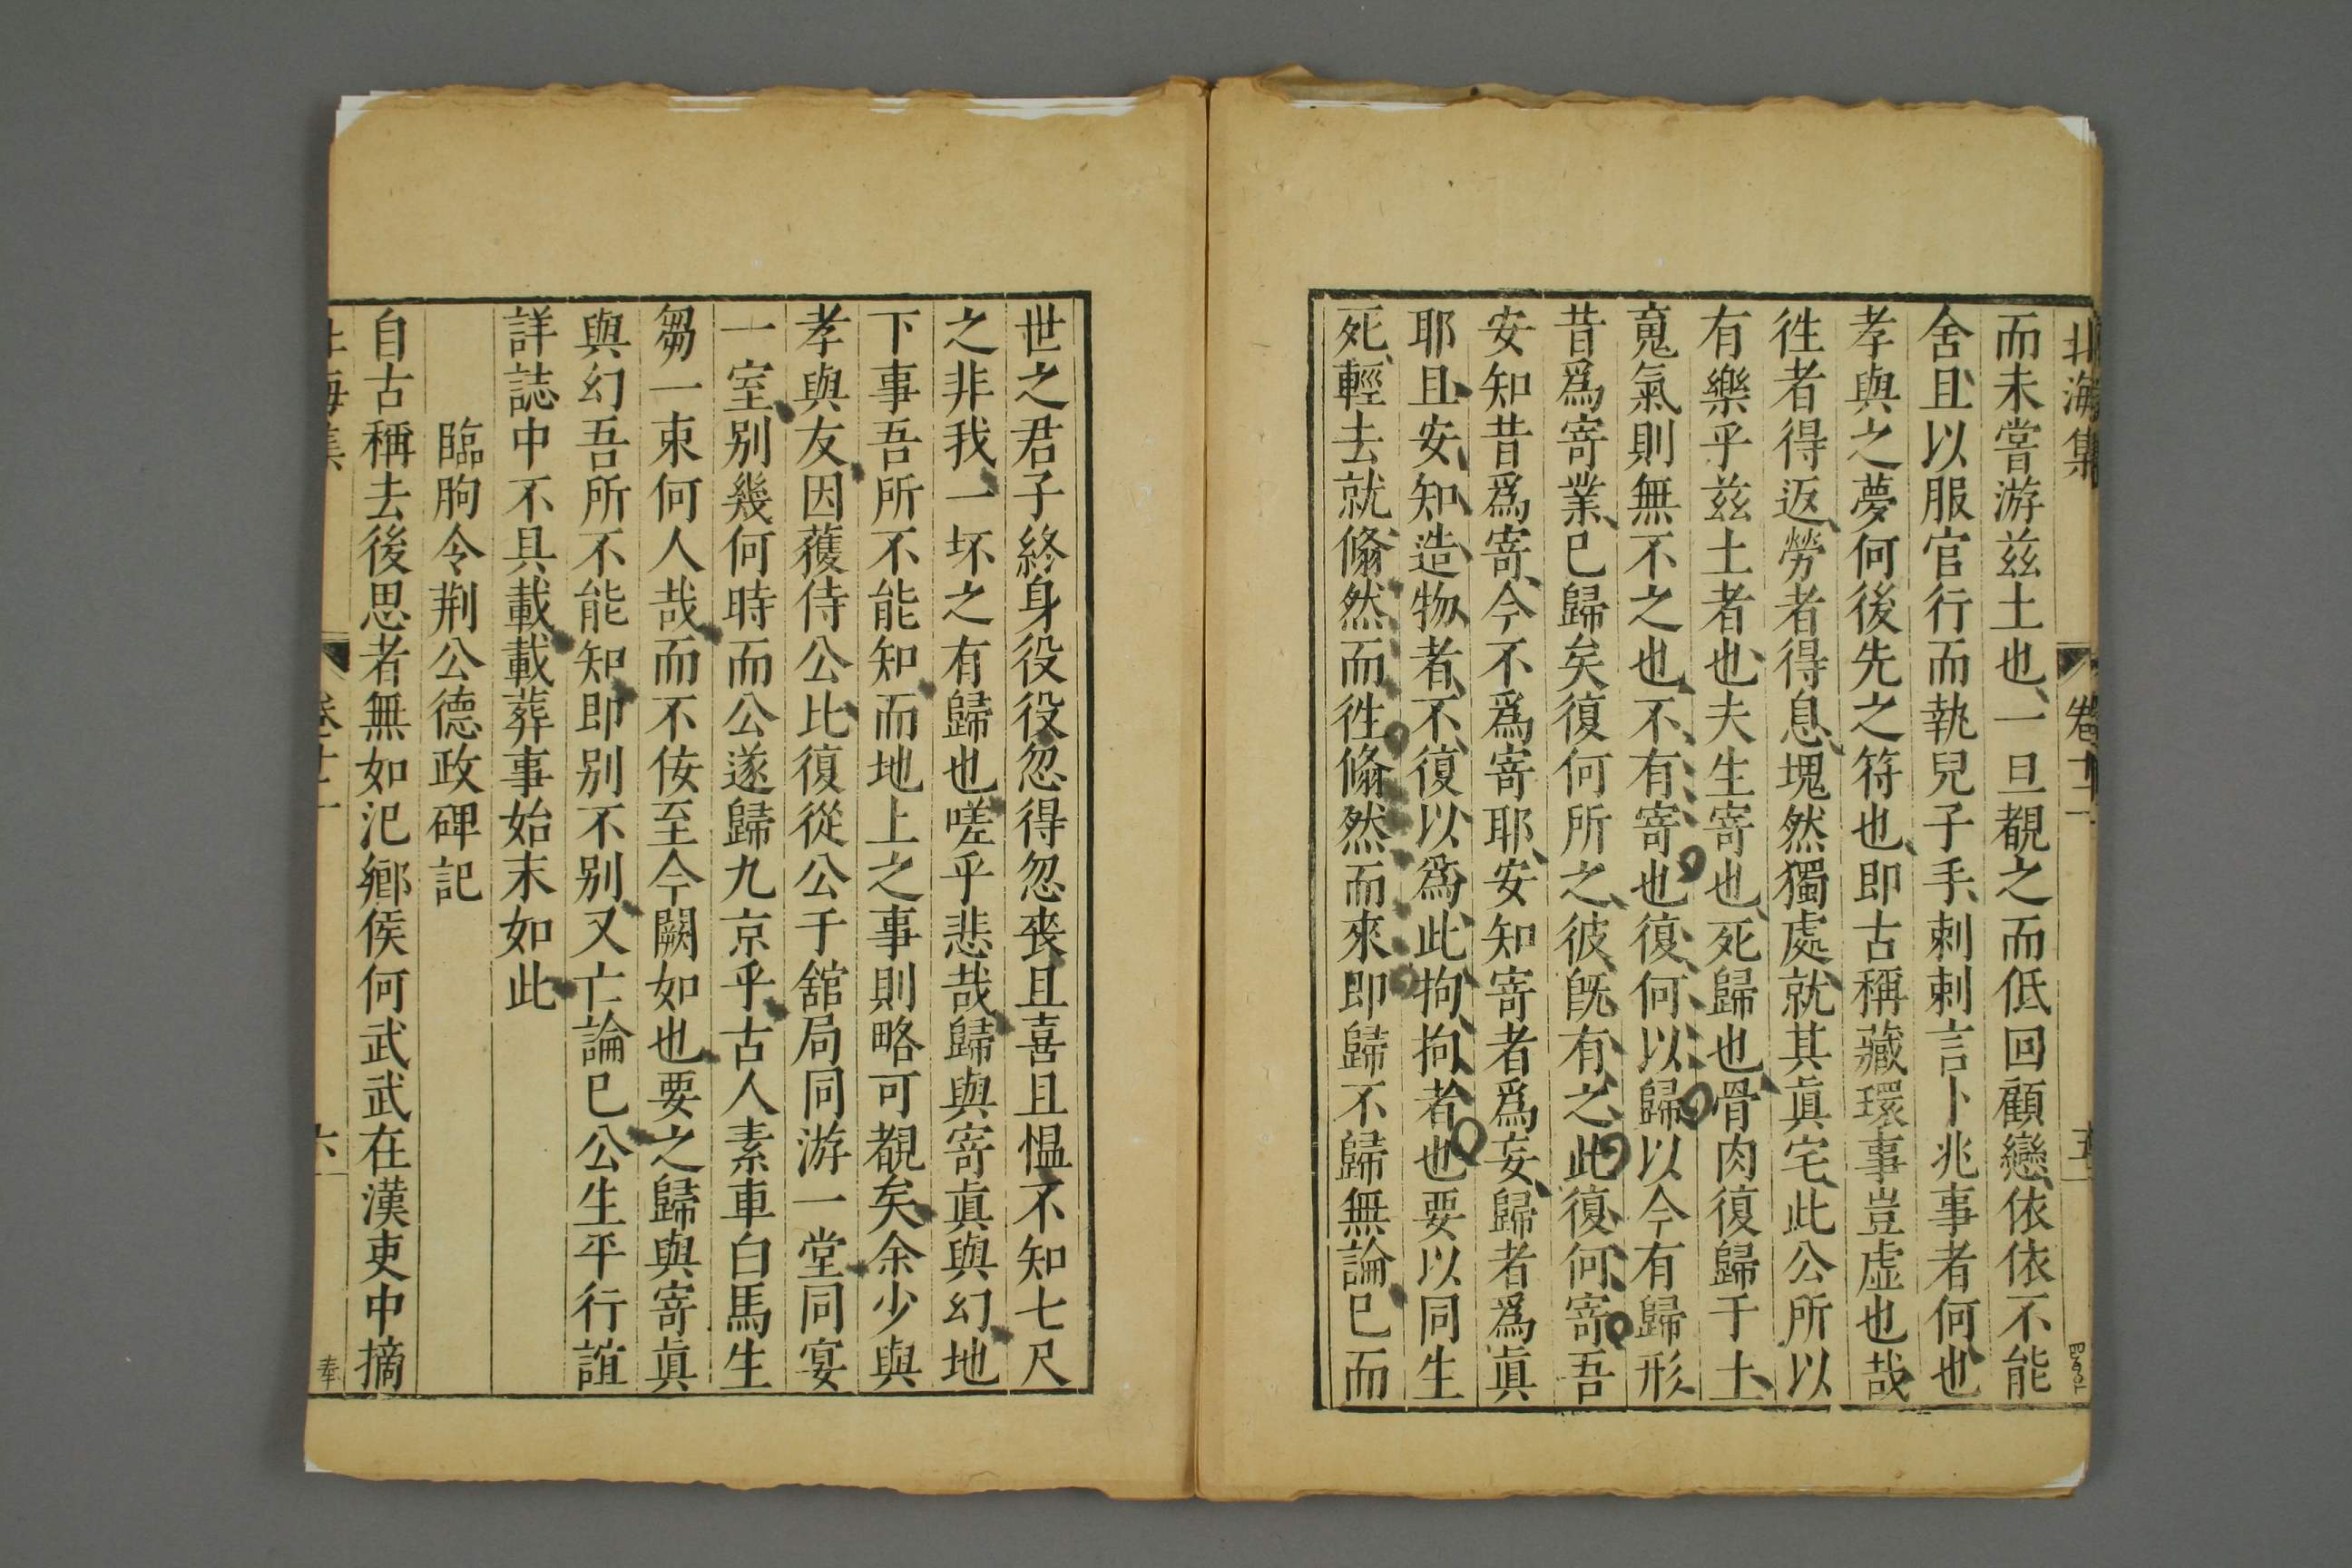 北海集 卷十二 五
而未嘗游兹土也一旦覩之而低回顧戀依依不能
舍且以服官行而執兒子手剌剌言卜兆事者何也
孝與之夢何後先之符也即古稱藏環事豈虛也哉
徃者得返勞者得息塊然獨處就其眞宅此公所以
有樂乎兹土者也夫生寄也死歸也骨肉復歸于土
䰟氣則無不之也不有寄也復何以歸以今有歸形
昔爲寄業已歸矣復何所之彼旣有之此復何寄吾
安知昔爲寄今不爲寄耶安知寄者爲妄歸者爲眞
耶且安知造物者不復以爲此拘拘者也要以同生
死輕去就翛然而徃翛然而來即歸不歸無論已而
世之君子終身役役忽得忽喪且喜且愠不知七尺
之非我一坏之有歸也嗟乎悲哉歸與寄眞與幻地
下事吾所不能知而地上之事則略可覩矣余少與
孝與友因獲侍公比復從公于舘局同游一堂同宴
一室别幾何時而公遂歸九京乎古人素車白馬生
芻一束何人哉而不佞至今闕如也要之歸與寄眞
與幻吾所不能知即别不别又亡論已公生平行誼
詳誌中不具載載葬事始末如此
臨朐令荆公德政碑記
自古稱去後思者無如汜鄉侯何武武在漢吏中摘
海集 卷十二 六 奉